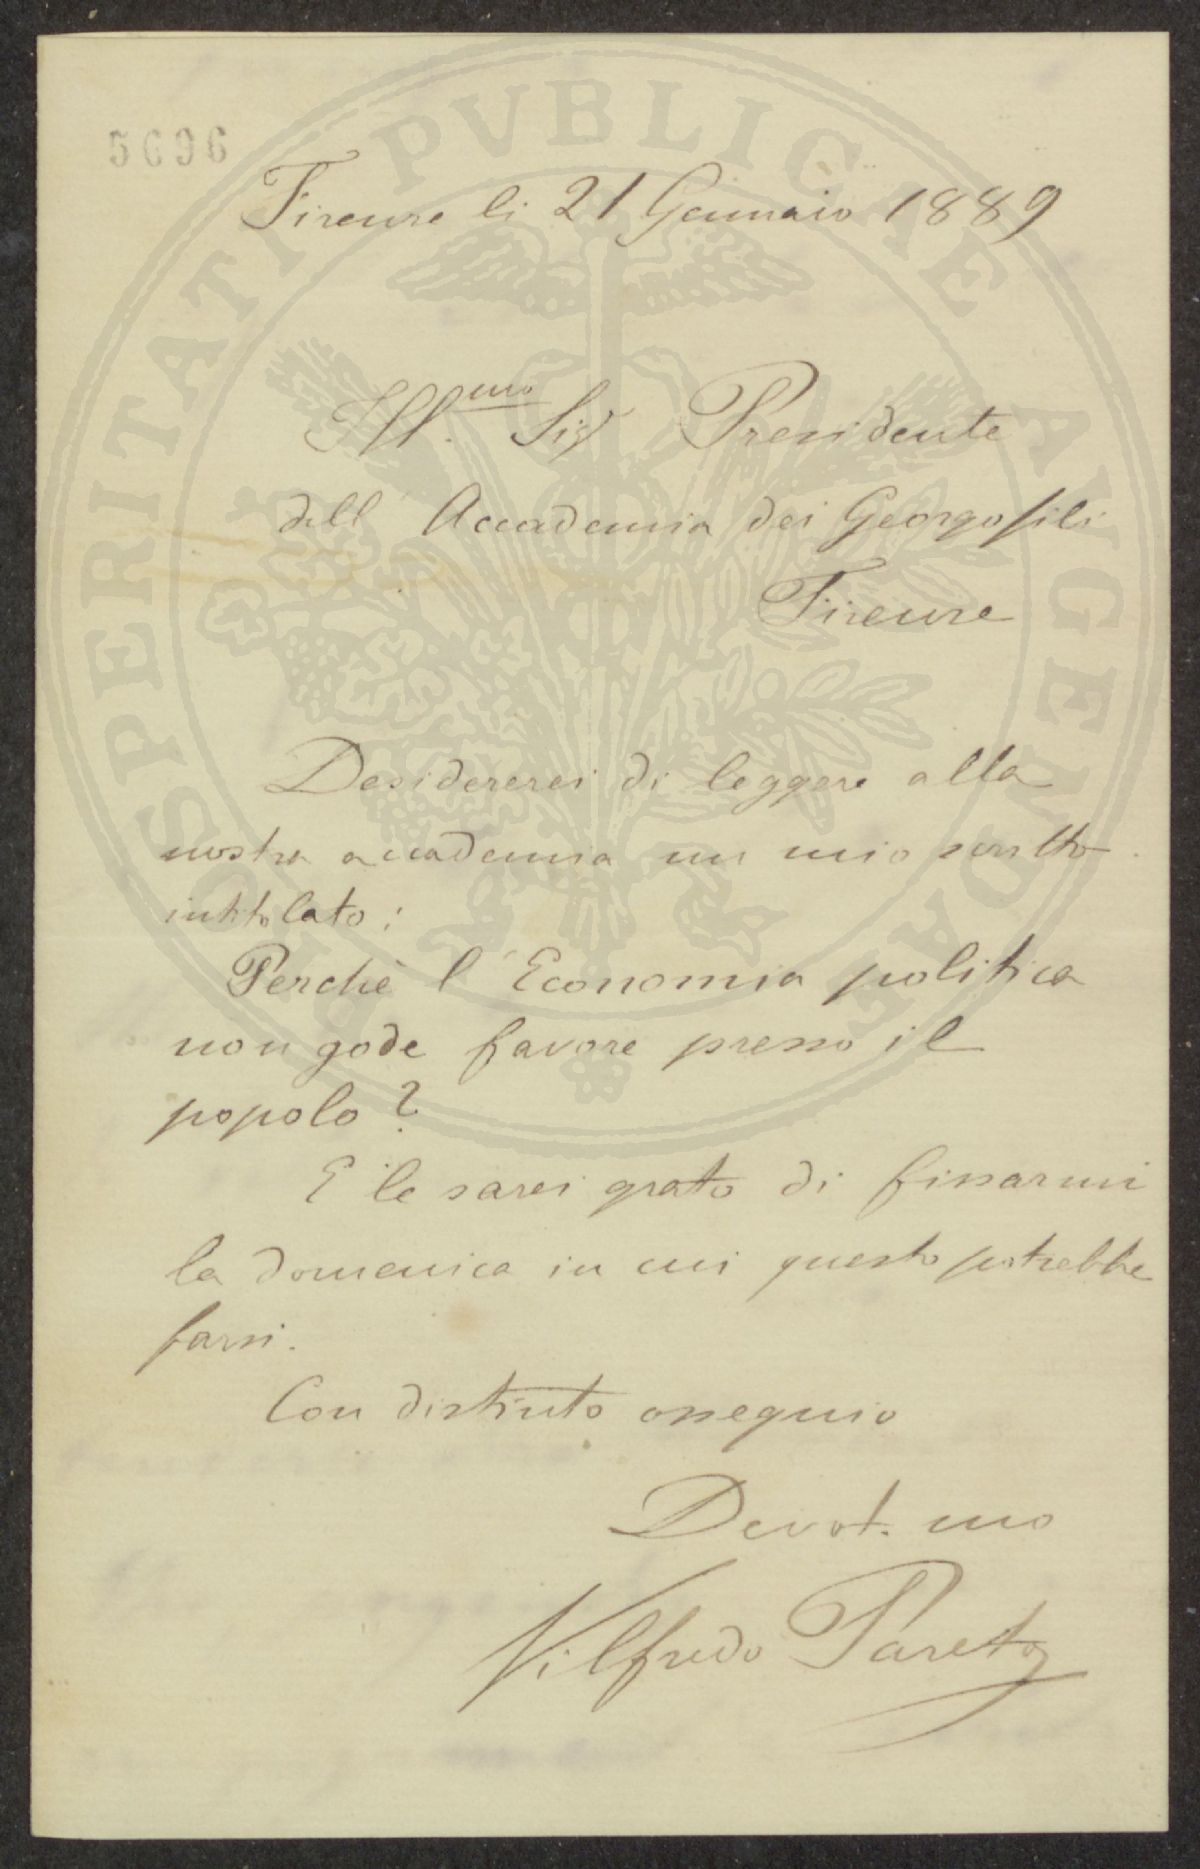 5696
Firenze li 21 Gennaio 1889
Ill.mo Sig Presidente
dell' Accademia dei Georgofili
Firenze
Desidererei di leggere alla
nostra accademia un mio scritto
intitolato:
Perchè l'Economia politica
non gode favore presso il
popolo?
E le sarei grato di fissarmi
la domenica in cui questo potrebbe
farsi.
Con distinto ossequio
Devot.mo
Vilfredo Pareto
PROSPERITATI PVBLICAE AVGENDAE